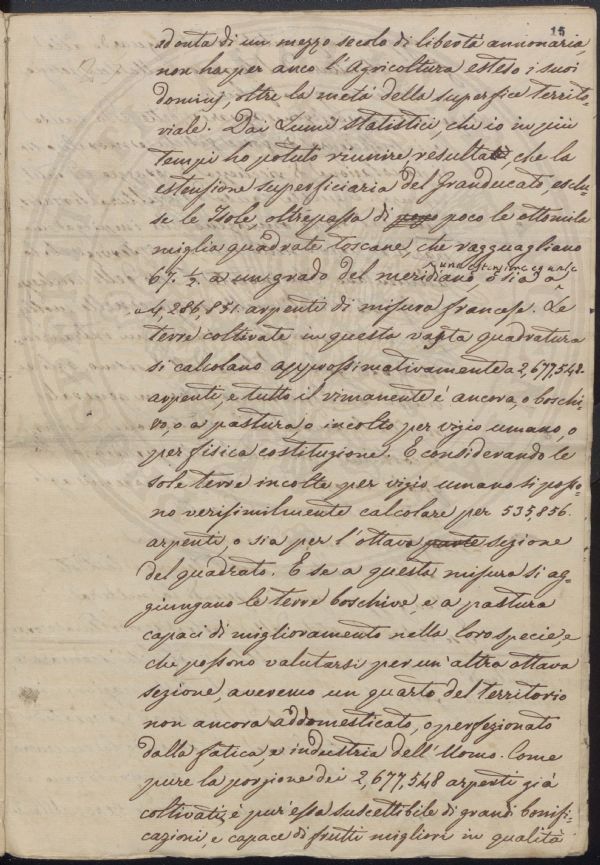 15
ad onta di un mezzo secolo di libertà annonaria
non ha per anco l'Agricoltura esteso i suoi
dominj, oltre la metà della superfice territo-
riale. Dai Lumi statistici, che io in più
tempi ho potuto riunire resulta, che la
estensione superficiaria del Granducato, esclu-
se le Isole, oltrepassa di poco le ottomila
miglia quadrate Toscane, che ragguagliano
67. ½. a un grado del meridiano o sia a
una estensione eguale
a 4,286,851. arpenti di misura francese. Le
terre coltivate in questa vasta quadratura
si calcolano approssimativamente a 2,677,548.
arpenti, e tutto il rimanente é ancora, o boschi-
vo, o a pastura o incolto per vizio umano, o
per fisica costituzione. E considerando le
sole terre incolte per vizio umano si posso-
no verisimilmente calcolare per 535,856.
arpenti, o sia per l'ottava parte sezione
del quadrato. E se a questa misura si ag-
giungano le terre boschive, e a pastura
capaci di miglioramento nella loro specie, e
che possono valutarsi per un'altra ottava
sezione, averemo un quarto del territorio
non ancora addomesticato, o perfezionato
dalla fatica, e industria dell'Uomo. Come
pure la porzione dei 2,677,548 arpenti già
coltivati, è pur'essa suscettibile di grandi bonifi-
cazioni, e capace di frutti migliori in qualità